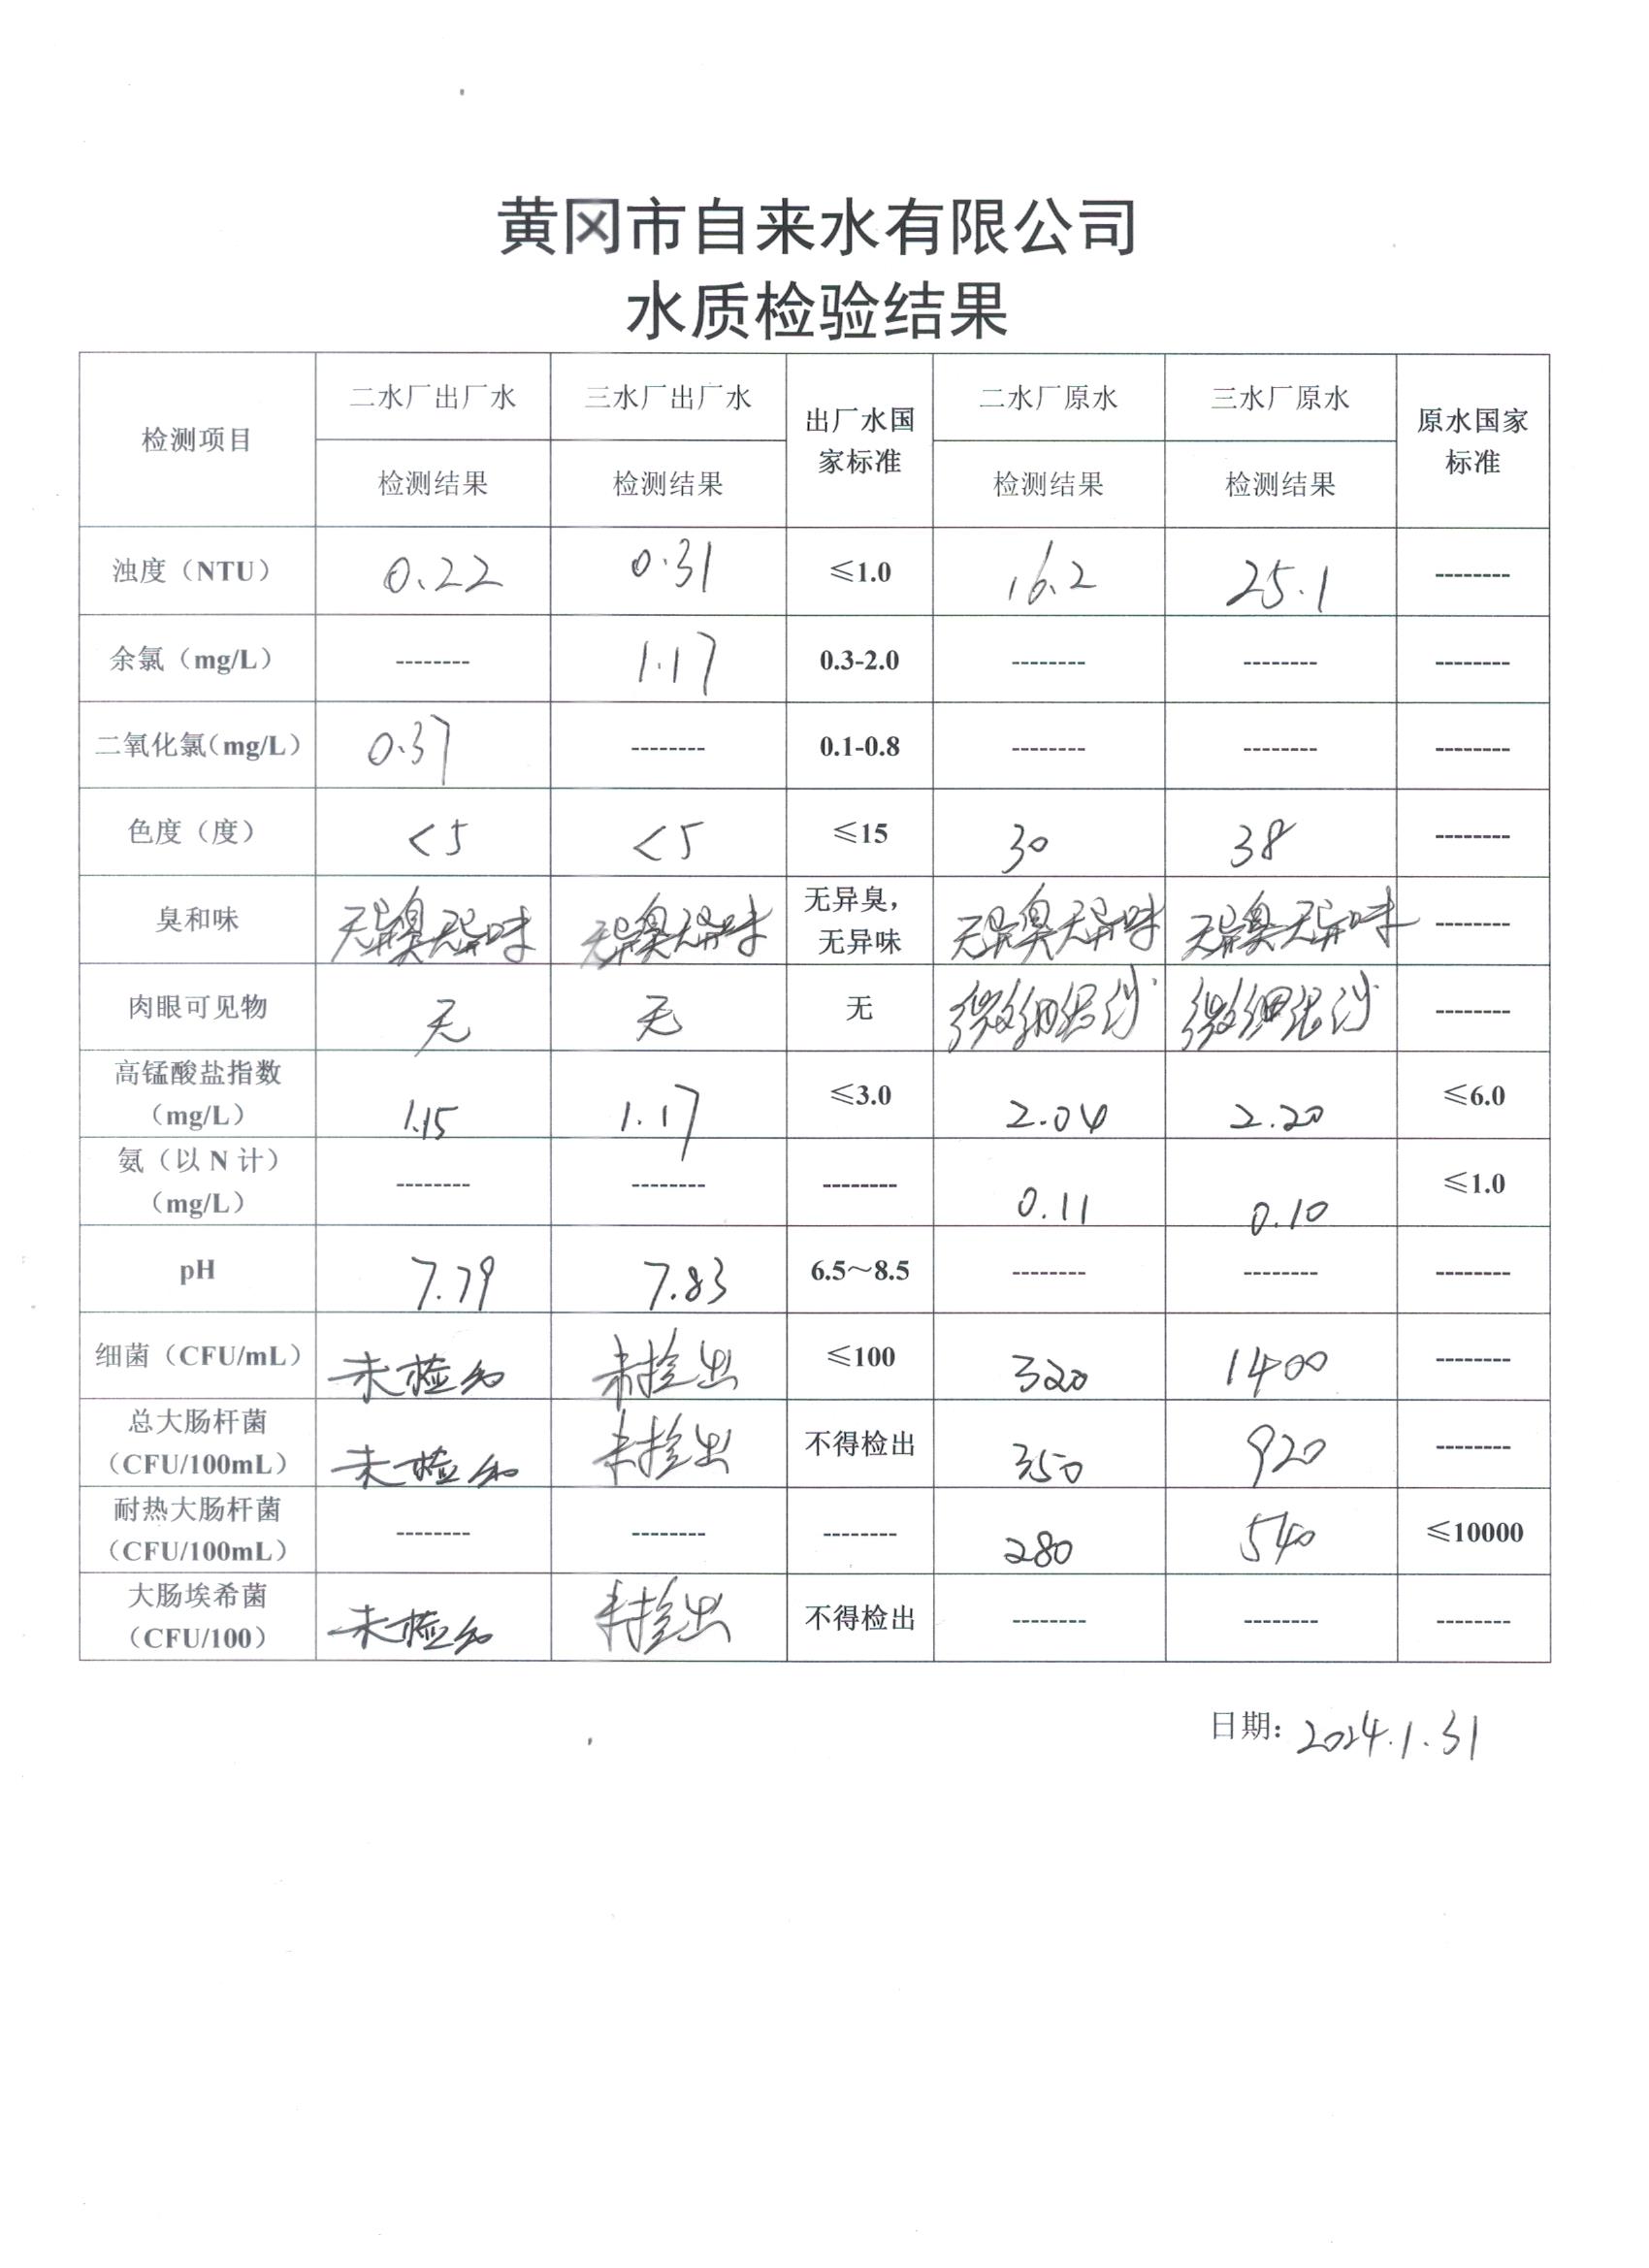 黄冈市自来水有限公司
水质检验结果
检测项目 二水厂出厂水 三水厂出厂水 出厂水国家标准 二水厂原水 三水厂原水 原水国家标准
检测结果 检测结果 检测结果 检测结果
浊度（NTU） 0.22 0.31 ≤1.0 16.2 25.1 --------
余氯（mg/L） -------- 1.17 0.3-2.0 -------- -------- --------
二氧化氯（mg/L） 0.37 -------- 0.1-0.8 -------- -------- --------
色度（度） <5 <5 ≤15 30 38 --------
臭和味 无异臭无异味 无异臭无异味 无异臭，无异味 无异臭无异味 无异臭无异味 --------
肉眼可见物 无 无 无 微细泥沙 微细泥沙 --------
高锰酸盐指数（mg/L） 1.15 1.17 ≤3.0 2.04 2.20 ≤6.0
氨（以 N 计）（mg/L） -------- -------- -------- 0.11 0.10 ≤1.0
pH 7.79 7.83 6.5～8.5 -------- -------- --------
细菌（CFU/mL） 未检出 未检出 ≤100 320 1400 --------
总大肠杆菌（CFU/100mL） 未检出 未检出 不得检出 350 920 --------
耐热大肠杆菌（CFU/100mL） -------- -------- -------- 280 540 ≤10000
大肠埃希菌（CFU/100） 未检出 未检出 不得检出 -------- -------- --------
日期：2024.1.31